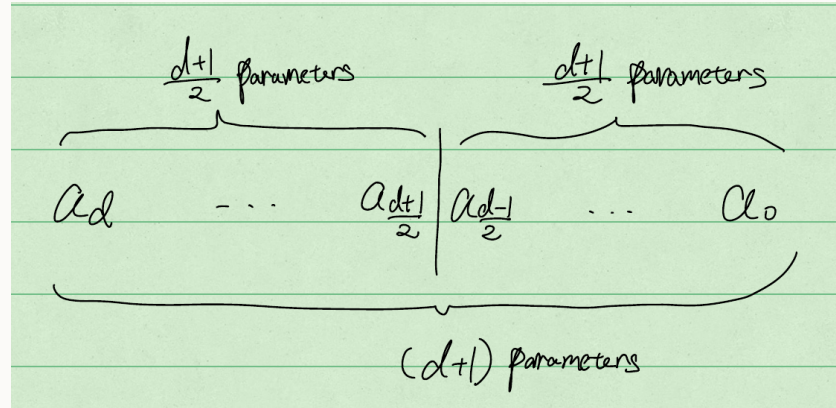 d+1/2 parameters d+1/2 parameters
a_d ... a_{d+1/2} | a_{d-1/2} ... a_0
(d+1) parameters